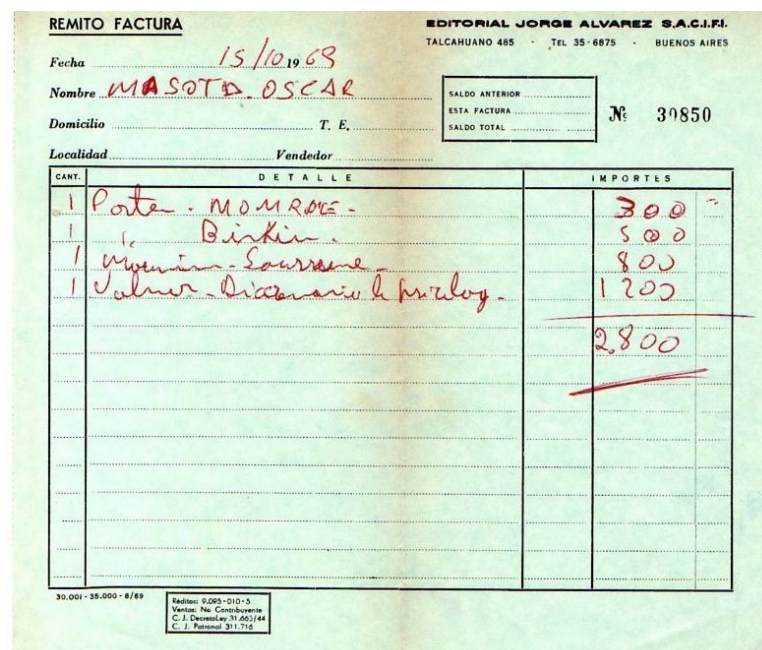 REMITO FACTURA
EDITORIAL JORGE ALVAREZ S.A.C.I.F.I.
TALCAHUANO 485 - TEL 35-6875 - BUENOS AIRES
Fecha 15/10 1969
Nombre MASOTA OSCAR
SALDO ANTERIOR
ESTA FACTURA
SALDO TOTAL
Nº 30850
Domicilio T. E.
Localidad Vendedor
CANT. DETALLE IMPORTES
1 Poster - 300
1 " Birkin. 500
1 Mounin - Saussure - 800
1 Diccionario de psicolog - 1200
2.800
30.001 - 35.000 - 8/69
Réditos: 9.095-010-5
Ventas: No Contribuyente
C. J. DecretoLey 31.665/44
C. J. Patronal 311.716